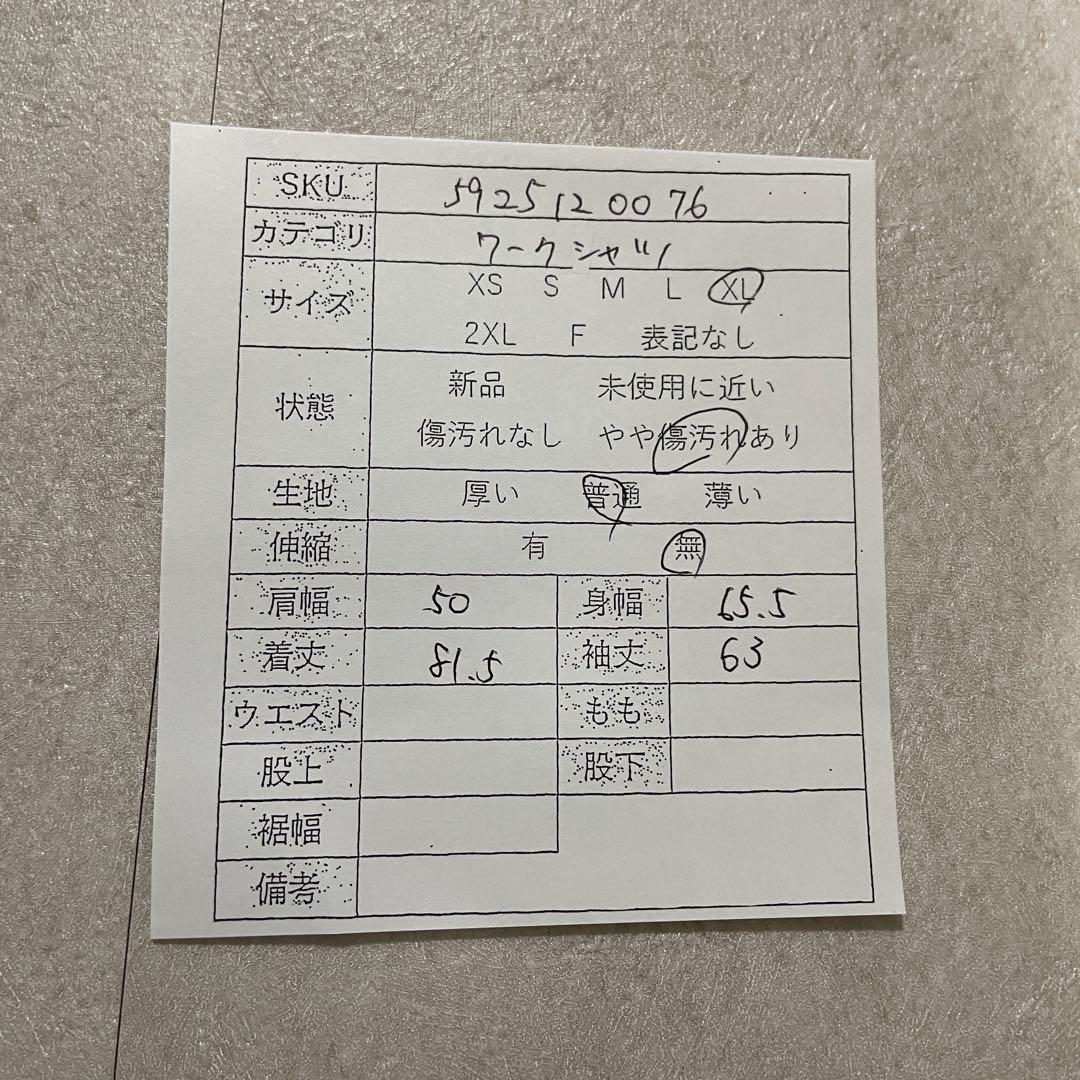 SKU 5925120076
カテゴリ ワークシャツ
サイズ XS S M L XL
2XL F 表記なし
状態 新品 未使用に近い
傷汚れなし やや傷汚れあり
生地 厚い 普通 薄い
伸縮 有 無
肩幅 50 身幅 65.5
着丈 81.5 袖丈 63
ウエスト もも
股上 股下
裾幅
備考